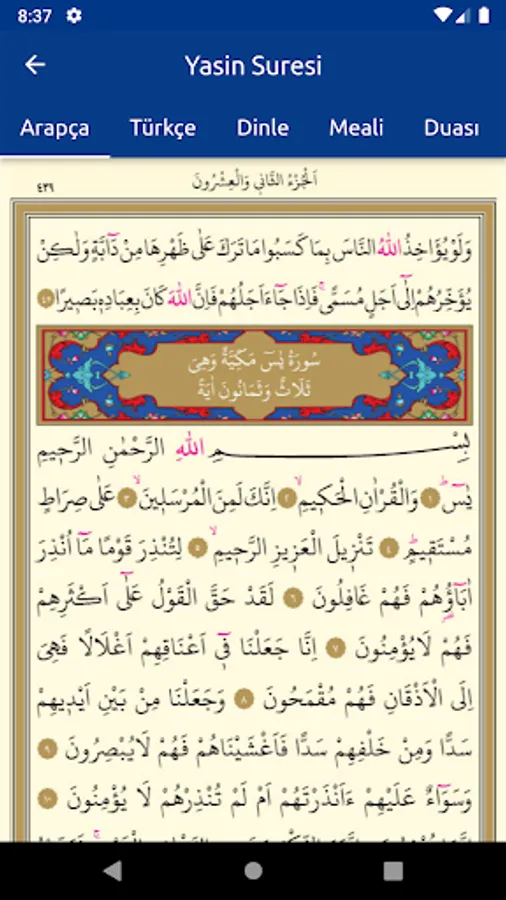 8:37
Yasin Suresi
Arapça Türkçe Dinle Meali Duası
اَلْجُزْءُ الثَّانِي وَالْعِشْرُونَ
٤٣٩
وَلَوْ يُؤَاخِذُ اللّٰهُ النَّاسَ بِمَا كَسَبُوا مَا تَرَكَ عَلٰى ظَهْرِهَا مِنْ دَٓابَّةٍ وَلٰكِنْ
يُؤَخِّرُهُمْ اِلٰٓى اَجَلٍ مُسَمًّىۚ فَاِذَا جَٓاءَ اَجَلُهُمْ فَاِنَّ اللّٰهَ كَانَ بِعِبَادِه۪ بَص۪يرًا ٤٥
سُورَةُ يٰسٓ مَكِّيَّةٌ وَهِيَ
ثَلَاثٌ وَثَمَانُونَ اٰيَةً
بِسْمِ اللّٰهِ الرَّحْمٰنِ الرَّح۪يمِ
يٰسٓۜ ١ وَالْقُرْاٰنِ الْحَك۪يمِۙ ٢ اِنَّكَ لَمِنَ الْمُرْسَل۪ينَۙ ٣ عَلٰى صِرَاطٍ
مُسْتَق۪يمٍۜ ٤ تَنْز۪يلَ الْعَز۪يزِ الرَّح۪يمِۙ ٥ لِتُنْذِرَ قَوْمًا مَٓا اُنْذِرَ
اٰبَٓاؤُ۬هُمْ فَهُمْ غَافِلُونَ ٦ لَقَدْ حَقَّ الْقَوْلُ عَلٰٓى اَكْثَرِهِمْ
فَهُمْ لَا يُؤْمِنُونَ ٧ اِنَّا جَعَلْنَا ف۪ٓي اَعْنَاقِهِمْ اَغْلَالًا فَهِيَ
اِلَى الْاَذْقَانِ فَهُمْ مُقْمَحُونَ ٨ وَجَعَلْنَا مِنْ بَيْنِ اَيْد۪يهِمْ
سَدًّا وَمِنْ خَلْفِهِمْ سَدًّا فَاَغْشَيْنَاهُمْ فَهُمْ لَا يُبْصِرُونَ ٩
وَسَوَٓاءٌ عَلَيْهِمْ ءَاَنْذَرْتَهُمْ اَمْ لَمْ تُنْذِرْهُمْ لَا يُؤْمِنُونَ ١٠